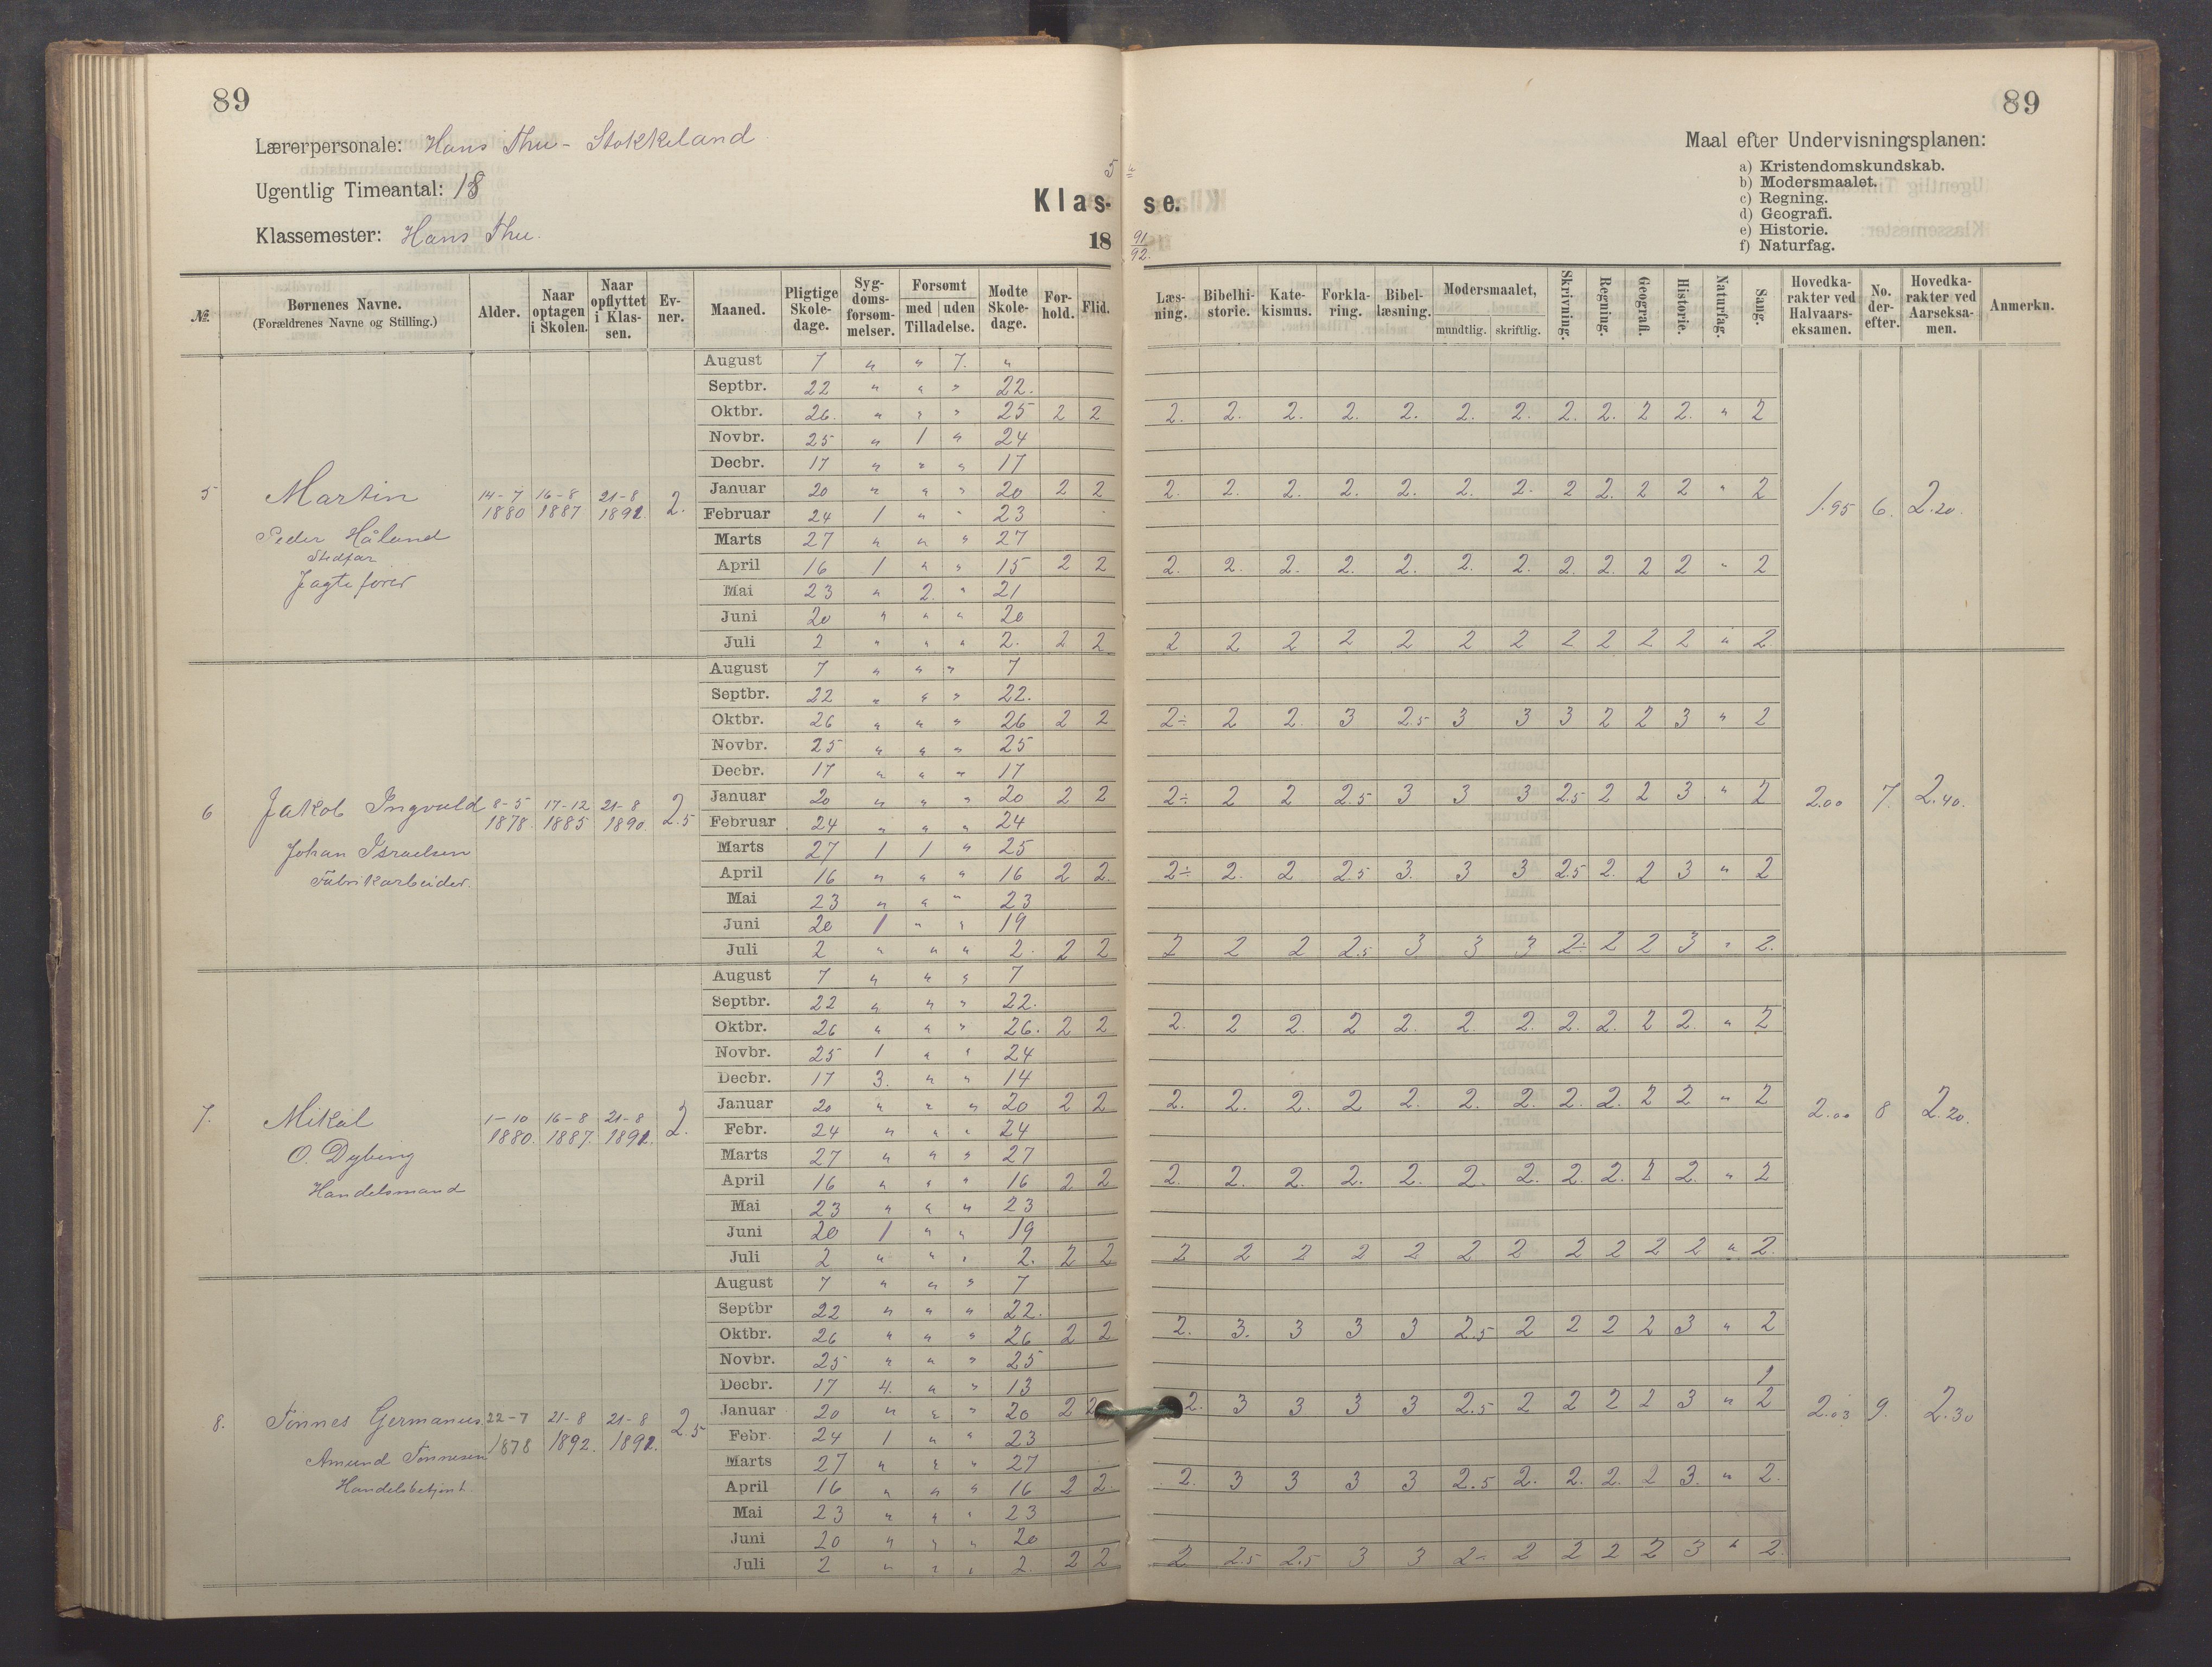 89
89
Lærerpersonale: Hans Thu - Stokkeland
Ugentlig Timeantal: 18
Klassemester: Hans Thu.
5
Klas- se.
18 91/92.
Maal efter Undervisningsplanen:
a) Kristendomskundskab.
b) Modersmaalet.
c) Regning.
d) Geografi.
e) Historie.
f) Naturfag.
№ Børnenes Navne. (Forældrenes Navne og Stilling.) Alder. Naar optagen i Skolen. Naar opflyttet i Klassen. Evner. Maaned. Pligtige Skoledage. Sygdomsforsømmelser. Forsømt med uden Tilladelse. Mødte Skoledage. Forhold. Flid. Læsning. Bibelhistorie. Katekismus. Forklaring. Bibellæsning. Modersmaalet, mundtlig. skriftlig. Skrivning. Regning. Geografi. Historie. Naturfag. Sang. Hovedkarakter ved Halvaarseksamen. No. derefter. Hovedkarakter ved Aarseksamen. Anmerkn.
5 Martin
Peder Håland
Stedfar
Jagtefører
14-7 1880 16-8 1887 21-8 1891. 2. 1.95 6. 2.20.
August 7 " " 7. "
Septbr. 22 " " " 22.
Oktbr. 26. " " " 25 2 2 2. 2. 2. 2. 2. 2. 2. 2. 2. 2 2. " 2
Novbr. 25 " 1 " 24
Decbr. 17 " " " 17
Januar 20 " " " 20 2 2 2. 2. 2. 2. 2. 2. 2. 2 2. 2 2 " 2
Februar 24 1 " " 23
Marts 27 " " " 27
April 16 1 " " 15 2 2 2. 2. 2. 2. 2. 2. 2. 2. 2. 2 2 " 2
Mai 23 " 2. " 21
Juni 20 " " " 20
Juli 2 " " " 2. 2 2 2 2 2 2 2 2 2 2 2 2 2 " 2
6 Jakob Ingvald
Johan Israelsen
Fabrikarbeider.
8-5 1878. 17-12 1885 21-8 1890. 2.5 2.00 7. 2.40.
August 7 " " " 7
Septbr. 22 " " " 22.
Oktbr. 26 " " " 26 2 2 2÷ 2 2. 3 2.5 3 3 3 2 2 3 " 2
Novbr. 25 " " " 25
Decbr. 17 " " " 17
Januar 20 " " " 20 2 2 2÷ 2 2 2.5 3 3 3 2.5 2 2 3 " 2
Februar 24 " " " 24
Marts 27 1 1 " 25
April 16 " " " 16 2 2. 2÷ 2. 2 2.5 3. 3 3 2.5 2. 2 3 " 2
Mai 23 " " " 23
Juni 20 1 " " 19
Juli 2 " " " 2. 2 2 2 2 2 2.5 3 3 3 2÷ 2 2 3 " 2.
7. Mikal
O. Dybing
Handelsmand
1-10 1880. 16-8 1887. 21-8 1891. 2. 2.00 8 2.20.
August 7 " " " 7
Septbr. 22 " " " 22.
Oktbr. 26 " " " 26. 2 2 2. 2 2. 2 2. 2. 2. 2. 2. 2 2. " 2
Novbr. 25 1 " " 24
Decbr. 17 3. " " 14
Januar 20 " " " 20 2 2 2. 2. 2. 2 2. 2. 2. 2. 2. 2 2 " 2
Febr. 24 " " " 24
Marts 27 " " " 27
April 16 " " " 16 2 2 2. 2. 2. 2. 2. 2. 2. 2. 2. 2 2. " 2
Mai 23 " " " 23
Juni 20 1 " " 19
Juli 2 " " " 2. 2 2 2 2 2 2 2 2 2 2 2 2 2 " 2.
8. Tønnes Germanus
Amund Tønnesen
Handelsbetjent.
22-7 1878 21-8 1892. 21-8 1891. 2.5 2.03 9. 2.30
August 7 " " " 7
Septbr 22 " " " 22.
Oktbr. 26 " " " 26 2 2 2. 3. 3 3 3 2.5 2 2 2 2 3 " 2
Novbr. 25 " " " 25
Decbr. 17 4. " " 13 1
Januar 20 " " " 20 2 2 2. 3 3 3 3 2.5 2 2 2 2 3 " 2
Febr. 24 1 " " 23
Marts 27 " " " 27
April 16 " " " 16 2 2. 2. 3 3 3 3 2.5 2. 2. 2. 2 3. " 2.
Mai 23 " " " 23
Juni 20 " " " 20
Juli 2 " " " 2. 2 2 2 2.5 2.5 3 3 2- 2 2 2 2 3 " 2.